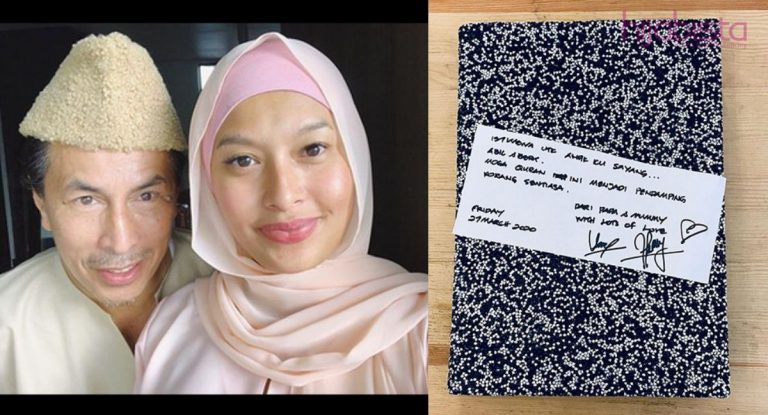 hijabista
ISTIMEWA UTK ANAK KU SAYANG...
MOGA QURAN INI MENJADI PENDAMPING
KORANG SENTIASA.
DARI PAPA & MUMMY
WITH LOTS OF LOVE
FRIDAY
27 MARCH 2020